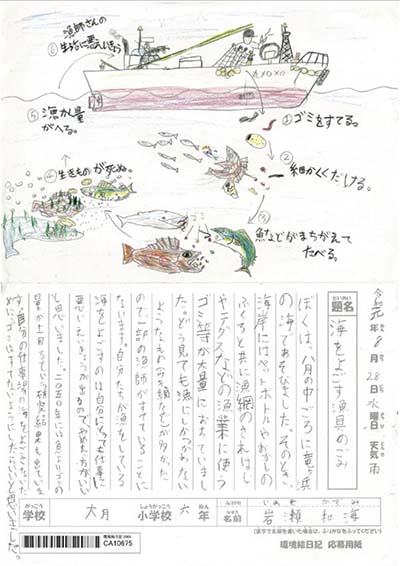 ⑥漁師さんの
生活に悪えいきょう
①ゴミをすてる。
②細かくくだける。
③魚などがまちがえて
たべる。
④生きものが死ぬ。
⑤漁かく量
がへる。
令和元年8月28日水曜日天気雨
題名
海をよごす漁具のごみ
ぼくは、八月の中ごろに竜ヶ浜
の海であそびました。そのとき、
海岸にはペットボトルやおかしの
ふくろと共に漁網のきれはし
やテグスなどの漁業に使う
ゴミ等が大量におちていまし
た。どう見ても漁にしかつかわない
ようなもの
が多かった
ので一部の漁師がすてていることに
ります。自分たちが漁をしている
海をよごすのは自分にとっても仕事に
悪えいきょうが出るのでやめた方がいい
と思いました。二〇五〇年には魚よりゴミの
量が上回るという研究結果も出ていま
す。自分の仕事場の海をよごさないた
めに、ゴミはすてないようにしたいと思いました。
がっこう
学校
大月
しょうがっこう
小学校
六
ねん
年
なまえ
名前
いわせ かずみ
岩瀬 和海
CA10675
環境絵日記 応募用紙